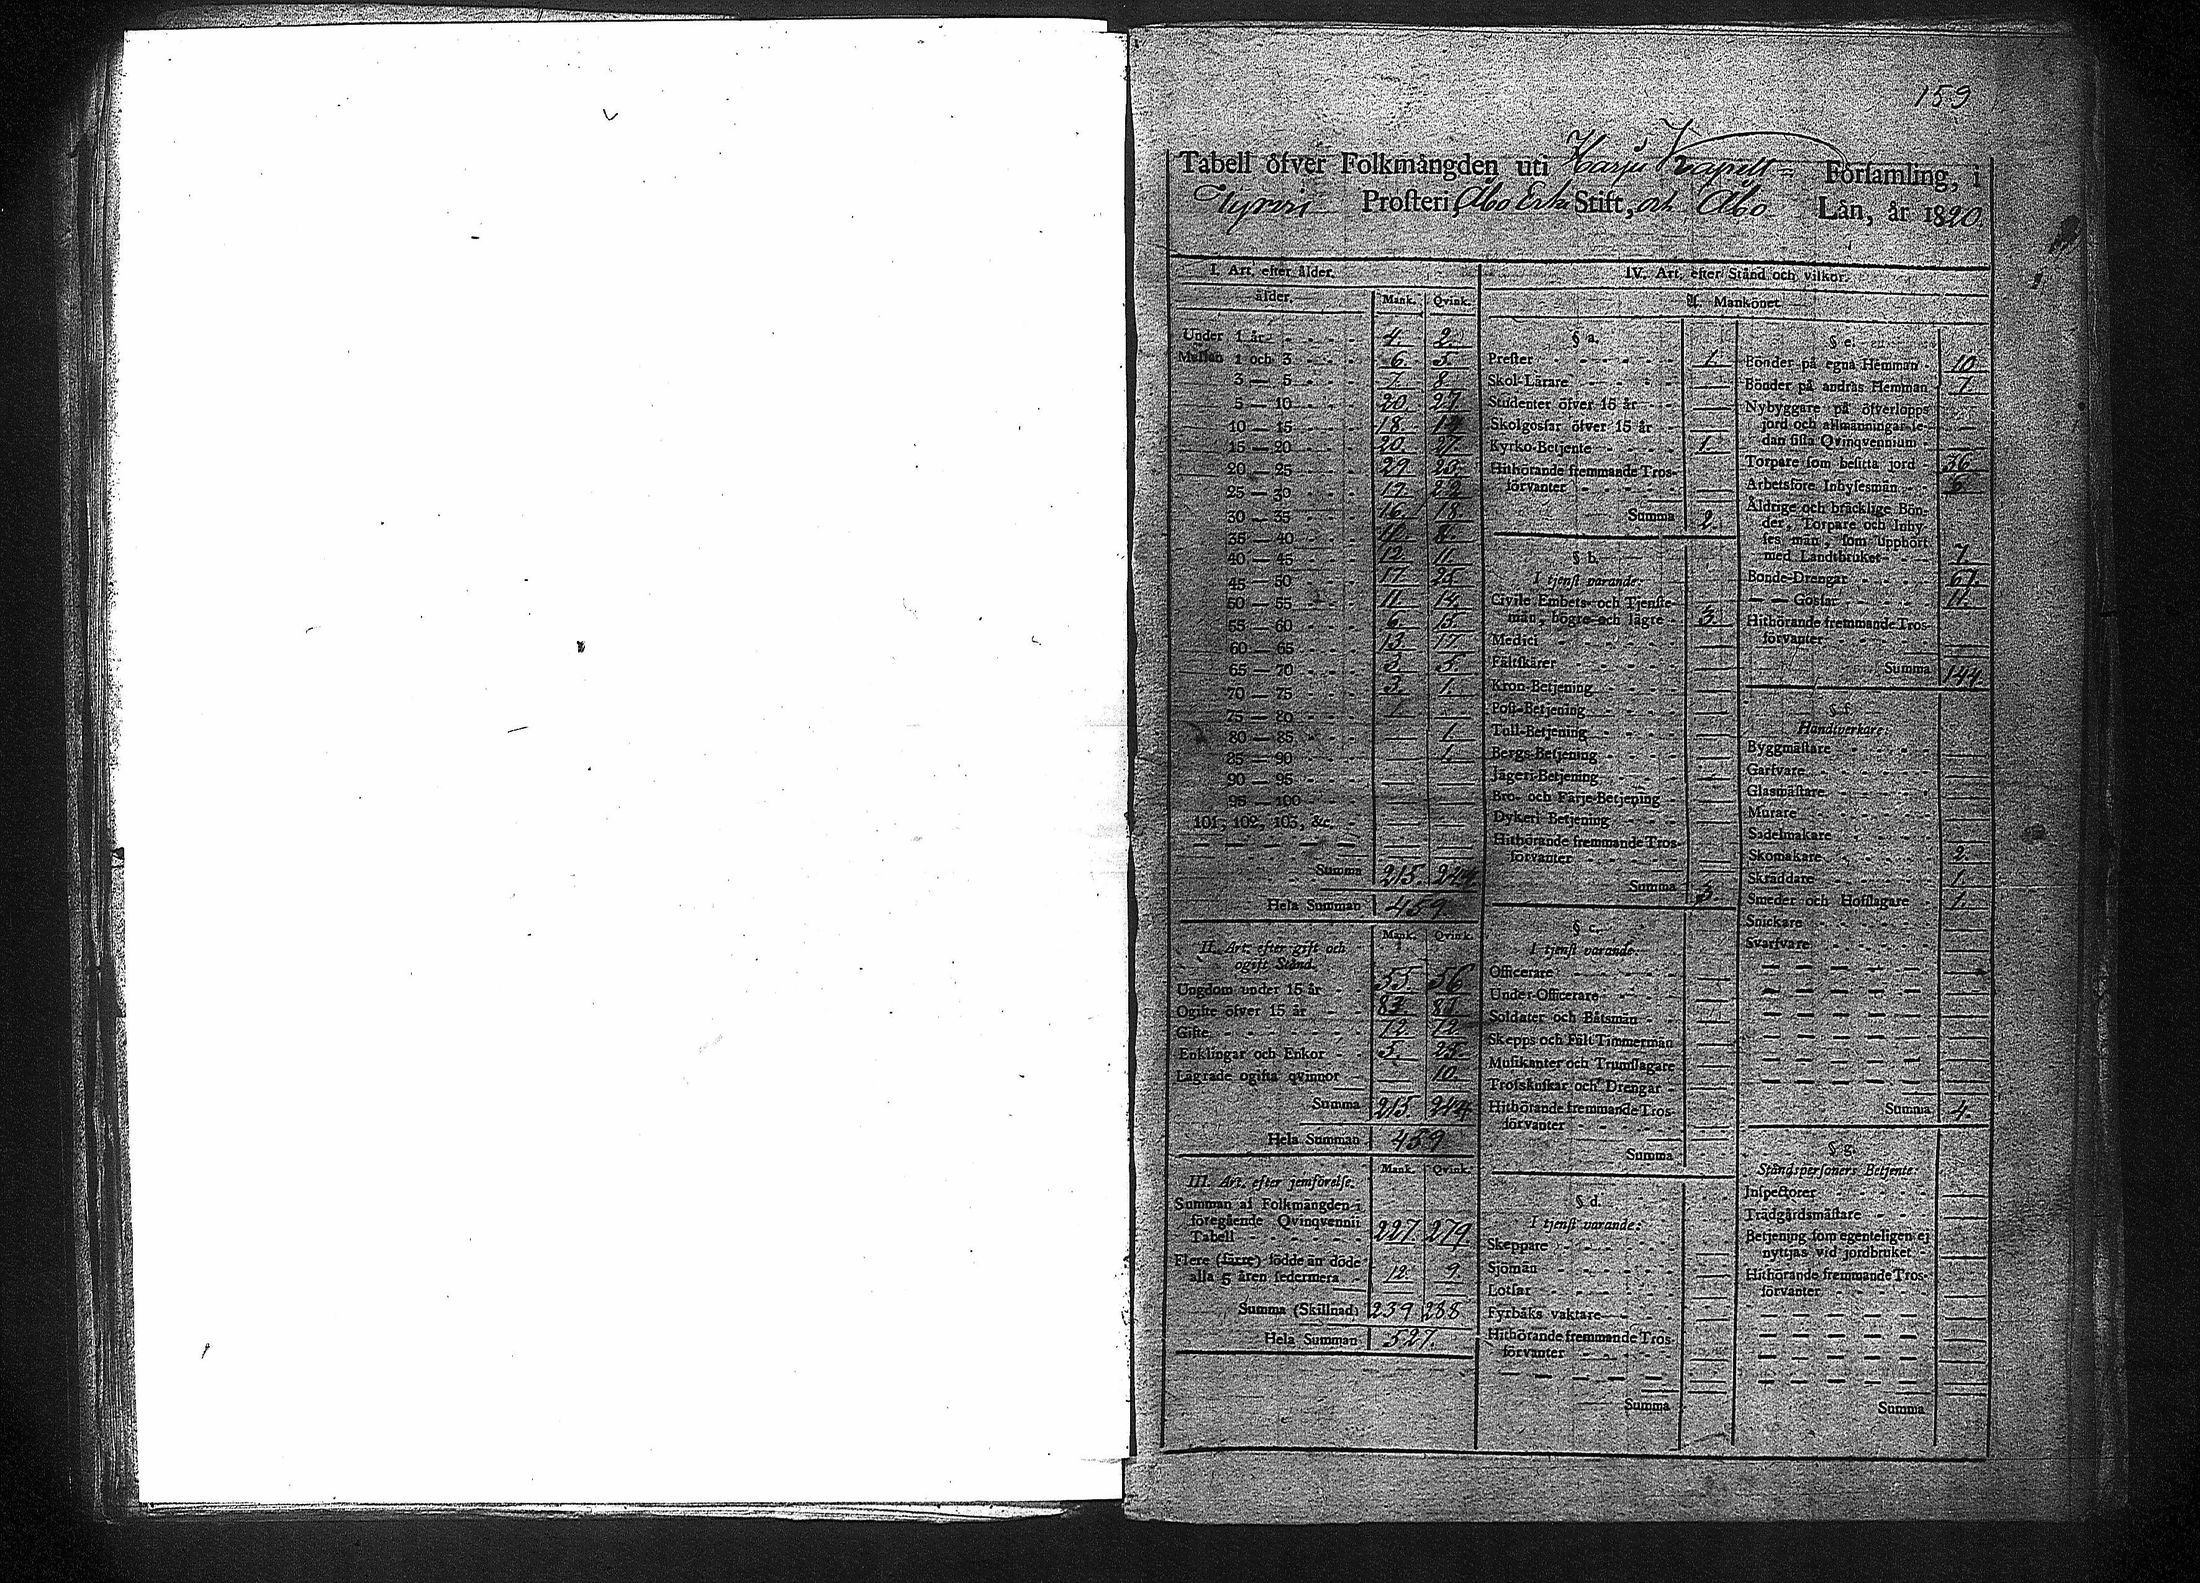 159
Tabell öfver Folkmängden uti Karju Capell= Församling, i
Prosteri, Åbo Erke Stift, och Åbo Län, år 1820.
I. Art. efter ålder.
ålder. Mank. Qvink.
Under 1 år 4. 2.
Mellan 1 och 3 6. 5.
3 — 5 7. 8.
5 — 10 20. 27.
10 — 15 18.
15 — 20 20. 27.
20 — 25 29.
25 — 30 22
30 — 35 16. 18.
35 — 40
40 — 45 12. 11.
45 — 50 17. 25.
50 — 55 11. 14.
55 — 60 6. 15.
60 — 65 13. 17.
65 — 70 3. 5.
70 — 75 3. 1.
75 — 80 — —
80 — 85 — 1.
85 — 90 — 1.
90 — 95 — —
95 — 100 — —
101, 102, 103, &c. — —
Summa 215. 244.
Hela Summan 459
II. Art. efter gift och Mank. Qvink.
ogift Stånd.
Ungdom under 15 år 55. 56
Ogifte öfver 15 år
Gifte
Enklingar och Enkor 5. 25.
Lägrade ogifta qvinnor — 10.
Summa 215 244.
Hela Summan 459
III. Art. efter jemförelse. Mank. Qvink.
Summan af Folkmängden i
föregående Qvinqvennii
Tabell 227. 279.
Flere (färre) födde än döde
alla 5 åren sedermera 12. 9.
Summa (Skillnad) 239 288
Hela Summan 527.
IV. Art. efter Stånd och vilkor.
A. Mankönet.
§ a.
Prester 1.
Skol-Lärare —
Studenter öfver 15 år —
Skolgossar öfver 15 år —
Kyrko-Betjente 1.
Hithörande fremmande Tros-
förvanter —
Summa 2.
§ b.
I tjenst varande:
Civile Embets- och Tjenste-
män, högre och lägre 3.
Medici —
Fältskärer —
Kron-Betjening —
Post-Betjening —
Tull-Betjening —
Bergs-Betjening —
Jägeri-Betjening —
Bro- och Färje-Betjening —
Dykeri Betjening —
Hithörande fremmande Tros-
förvanter —
Summa 3.
§ c.
I tjenst varande
Officerare —
Under-Officerare —
Soldater och Båtsmän —
Skepps och Fält Timmermän —
Musikanter och Trumslagare —
Tross​kuskar och Drengar —
Hithörande fremmande Tros-
förvanter —
Summa
§ d.
I tjenst varande:
Skeppare —
Sjömän —
Lotsar —
Fyrbåks vaktare —
Hithörande fremmande Tros-
förvanter —
Summa
§ e.
Bönder på egna Hemman 10
Bönder på andras Hemman 7.
Nybyggare på öfverlopps
jord och allmänningar se-
dan sista Qvinqvennium —
Torpare som besitta jord 36.
Arbetsföre Inhysesmän 6
Åldrige och bräcklige Bön-
der, Torpare och Inhy-
ses män, som upphört
med Landtbruket 7.
Bonde-Drengar 67.
— — Gossar 11.
Hithörande fremmande Tros-
förvanter —
Summa 144.
§ f.
Handtverkare:
Byggmästare —
Garfvare —
Glasmästare —
Murare —
Sadelmakare —
Skomakare 2.
Skräddare 1.
Smeder och Hofslagare 1.
Snickare —
Svarfvare —
Summa 4.
§ g.
Ståndspersoners Betjente:
Inspectorer —
Trädgårdsmästare —
Betjening som egenteligen ej
nyttjas vid jordbruket —
Hithörande fremmande Tros-
förvanter —
Summa